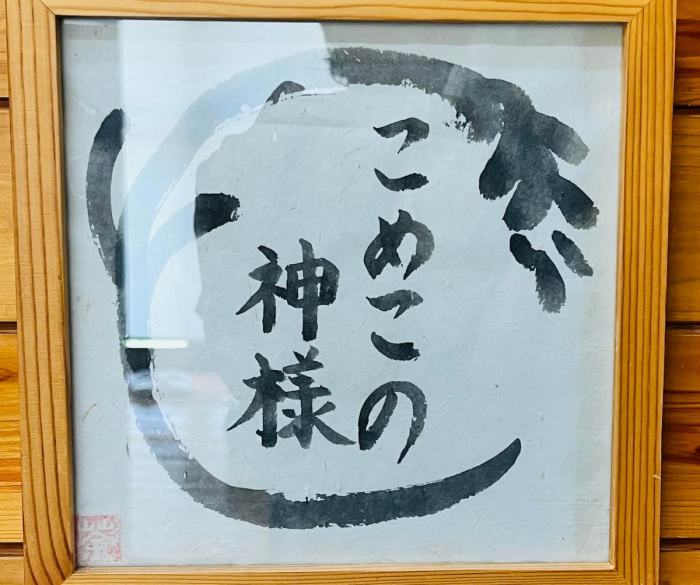 こめこの
神様